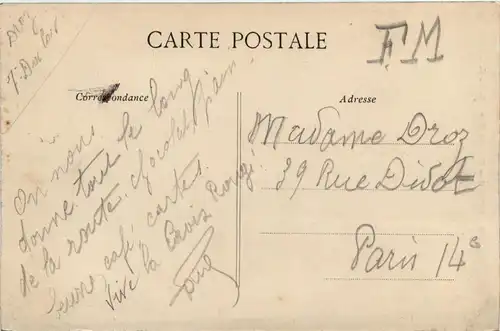 CARTE POSTALE
FM
Correspondance
Adresse
On nous
donne tout le long
de la route chocolat pain
beurre, café, cartes
Vive la Croix Rouge
Madame Droz
39 Rue Didot
Paris 14e